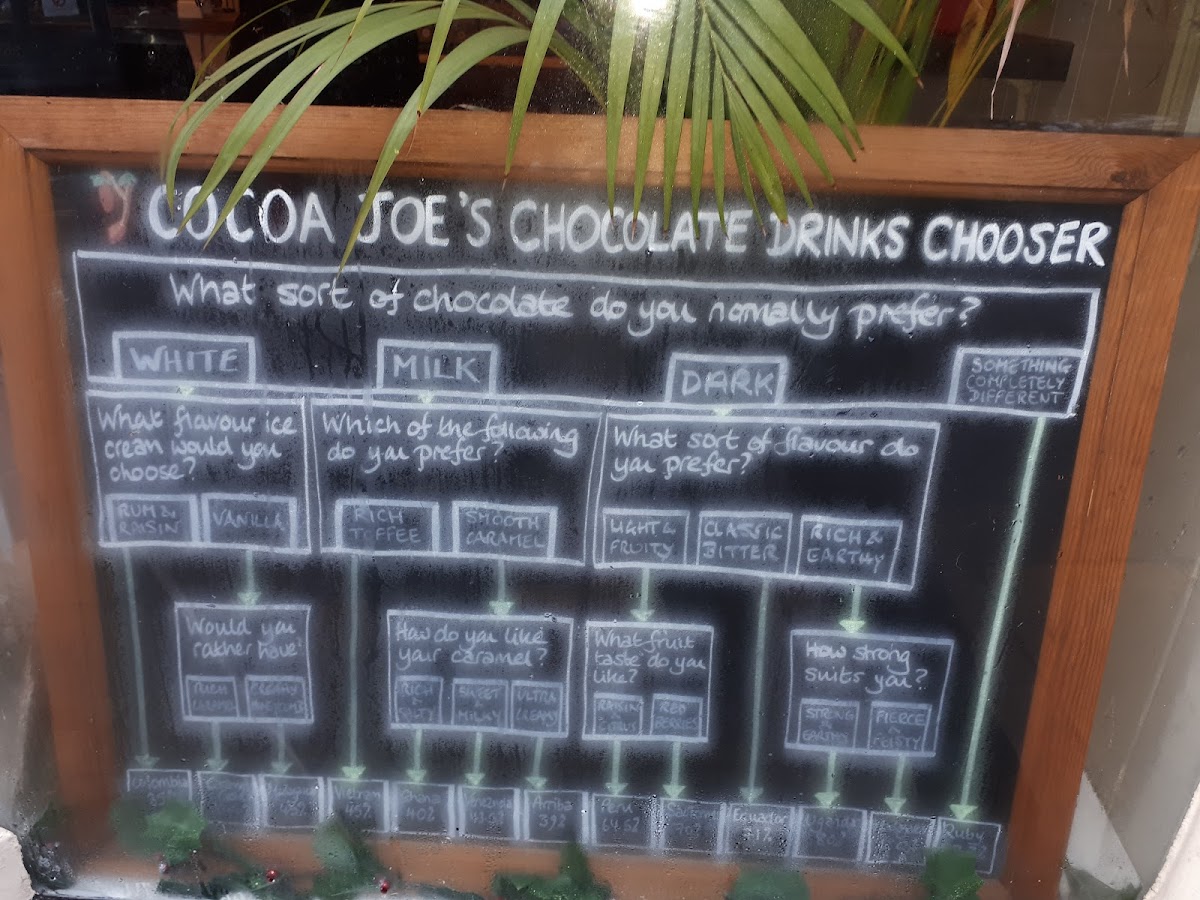 COCOA JOE'S CHOCOLATE DRINKS CHOOSER
What sort of chocolate do you normally prefer?
WHITE
MILK
DARK
SOMETHING
COMPLETELY
DIFFERENT
What flavour ice
cream would you
choose?
RUM &
RAISIN
VANILLA
Which of the following
do you prefer?
RICH
TOFFEE
SMOOTH
CARAMEL
What sort of flavour do
you prefer?
LIGHT &
FRUITY
CLASSIC
BITTER
RICH &
EARTHY
Would you
rather have
CREAMY
How do you like
your caramel?
RICH
&
SALTY
SWEET
&
MILKY
ULTRA
CREAMY
What fruit
taste do you
like?
RAISIN
& CITRUS
RED
BERRIES
How strong
suits you?
STRONG
EARTHY
FIERCE
&
FEISTY
Colombia
Vietnam
45%
Ghana
40%
Venezuela
Arriba
39%
Peru
64.5%
70%
Ecuador
71%
Uganda
80%
Ruby